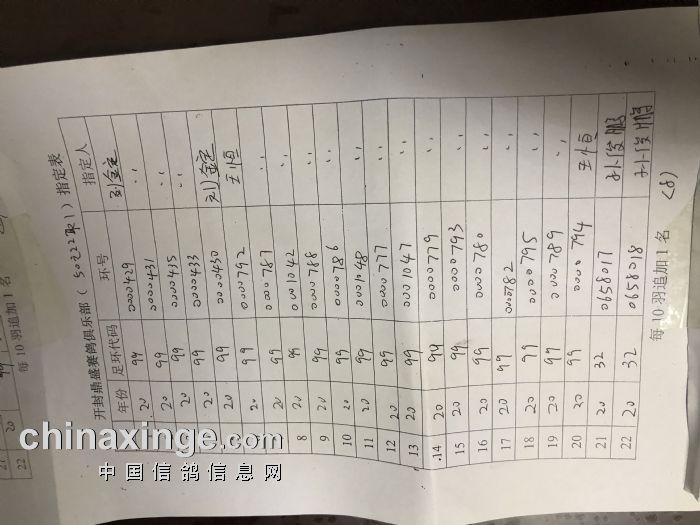 开封鼎盛赛鸽俱乐部（50元22取1）指定表
年份 足环代码 环号 指定人
20 99 0000429
20 99 0000431 〃
20 99 0000435 〃
20 99 0000433
20 99 0000430
20 99 0000792 王恒
20 99 0000787 〃
8 20 99 0001042 〃
9 20 99 0000788 〃
10 20 99 0000786 〃
11 20 99 0001048 〃
12 20 99 0000777 〃
13 20 99 0001047 〃
14 20 99 0000779 〃
15 20 99 0000793 〃
16 20 99 0000780 〃
17 20 99 0000782 〃
18 20 99 0000795 〃
19 20 99 0000789 〃
20 20 99 0000794 王恒
21 20 32 0658017 孙俊鹏
22 20 32 0658018 孙俊鹏
每10羽追加1名
(8)
每10羽追加1名
21 20
22
chinaxinge.com
中国信鸽信息网